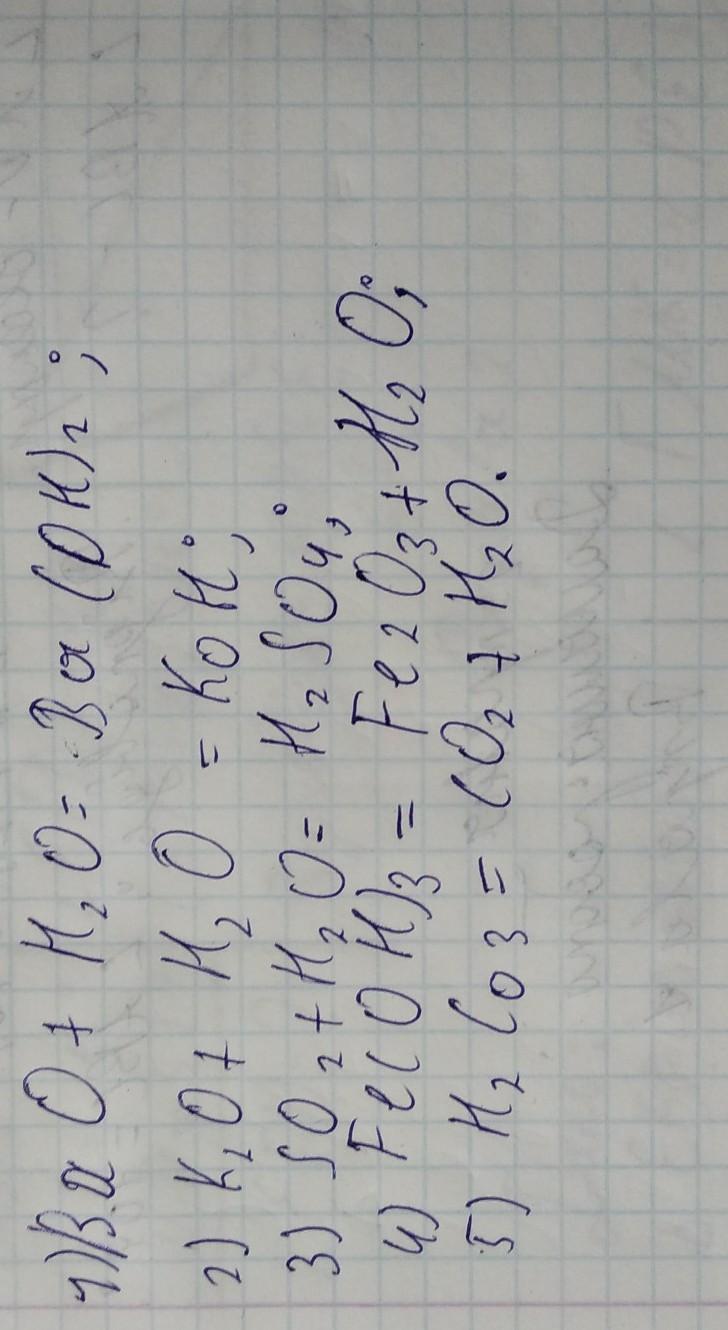 1) BaO + H2O = Ba(OH)2;
2) K2O + H2O = KOH;
3) SO2 + H2O = H2SO4;
4) Fe(OH)3 = Fe2O3 + H2O;
5) H2CO3 = CO2 + H2O.